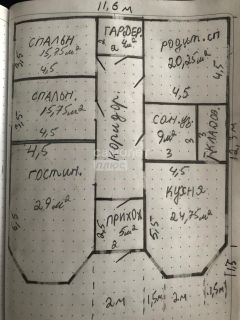 11,6 м
СПАЛЬН
15,75 м²
3,5
4,5
ГАРДЕР.
4 м²
2
2
РОДИТ. СП
20,25 м²
4,5
4,5
СПАЛЬН.
15,75 м²
3,5
4,5
Коридор.
САН. УЗ.
9 м²
3
3
КЛАДОВ.
4,5
ГОСТИН.
29 м²
4,5
КУХНЯ
24,75 м²
5,5
ПРИХОЖ
5 м²
2,5
2
1,5
2 м
1,5 м
2 м
1,5 м